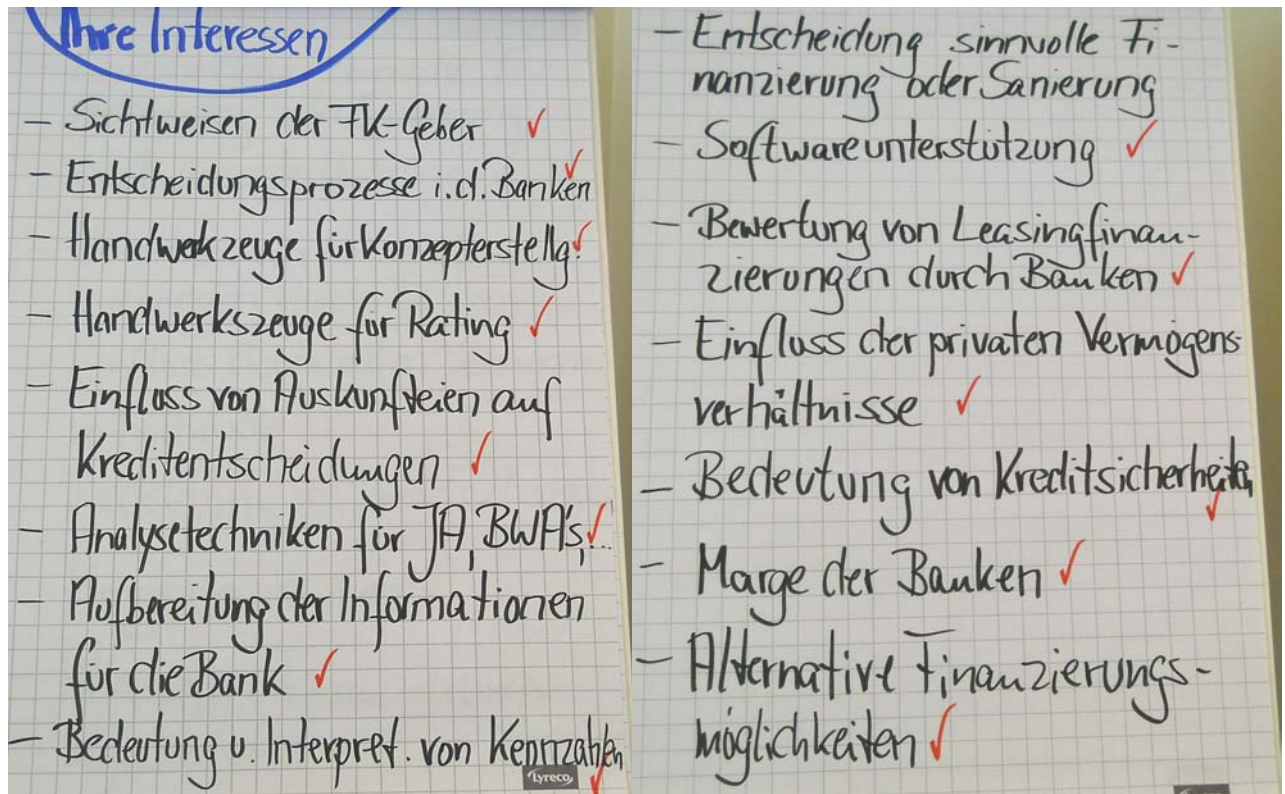 Ihre Interessen
- Sichtweisen der FK-Geber ✓
- Entscheidungsprozesse i.d. Banken ✓
- Handwekzeuge für Konzepterstellg. ✓
- Handwerkszeuge für Rating ✓
- Einfluss von Auskunfteien auf
Kreditentscheidungen ✓
- Analysetechniken für JA, BWA's, ... ✓
- Aufbereitung der Informationen
für die Bank ✓
- Bedeutung u. Interpret. von Kennzahlen ✓
Lyreco
- Entscheidung sinnvolle Fi-
nanzierung oder Sanierung
- Softwareunterstützung ✓
- Bewertung von Leasingfinan-
zierungen durch Banken ✓
- Einfluss der privaten Vermögens-
verhältnisse ✓
- Bedeutung von Kreditsicherheiten ✓
- Marge der Banken ✓
- Alternative Finanzierungs-
möglichkeiten ✓